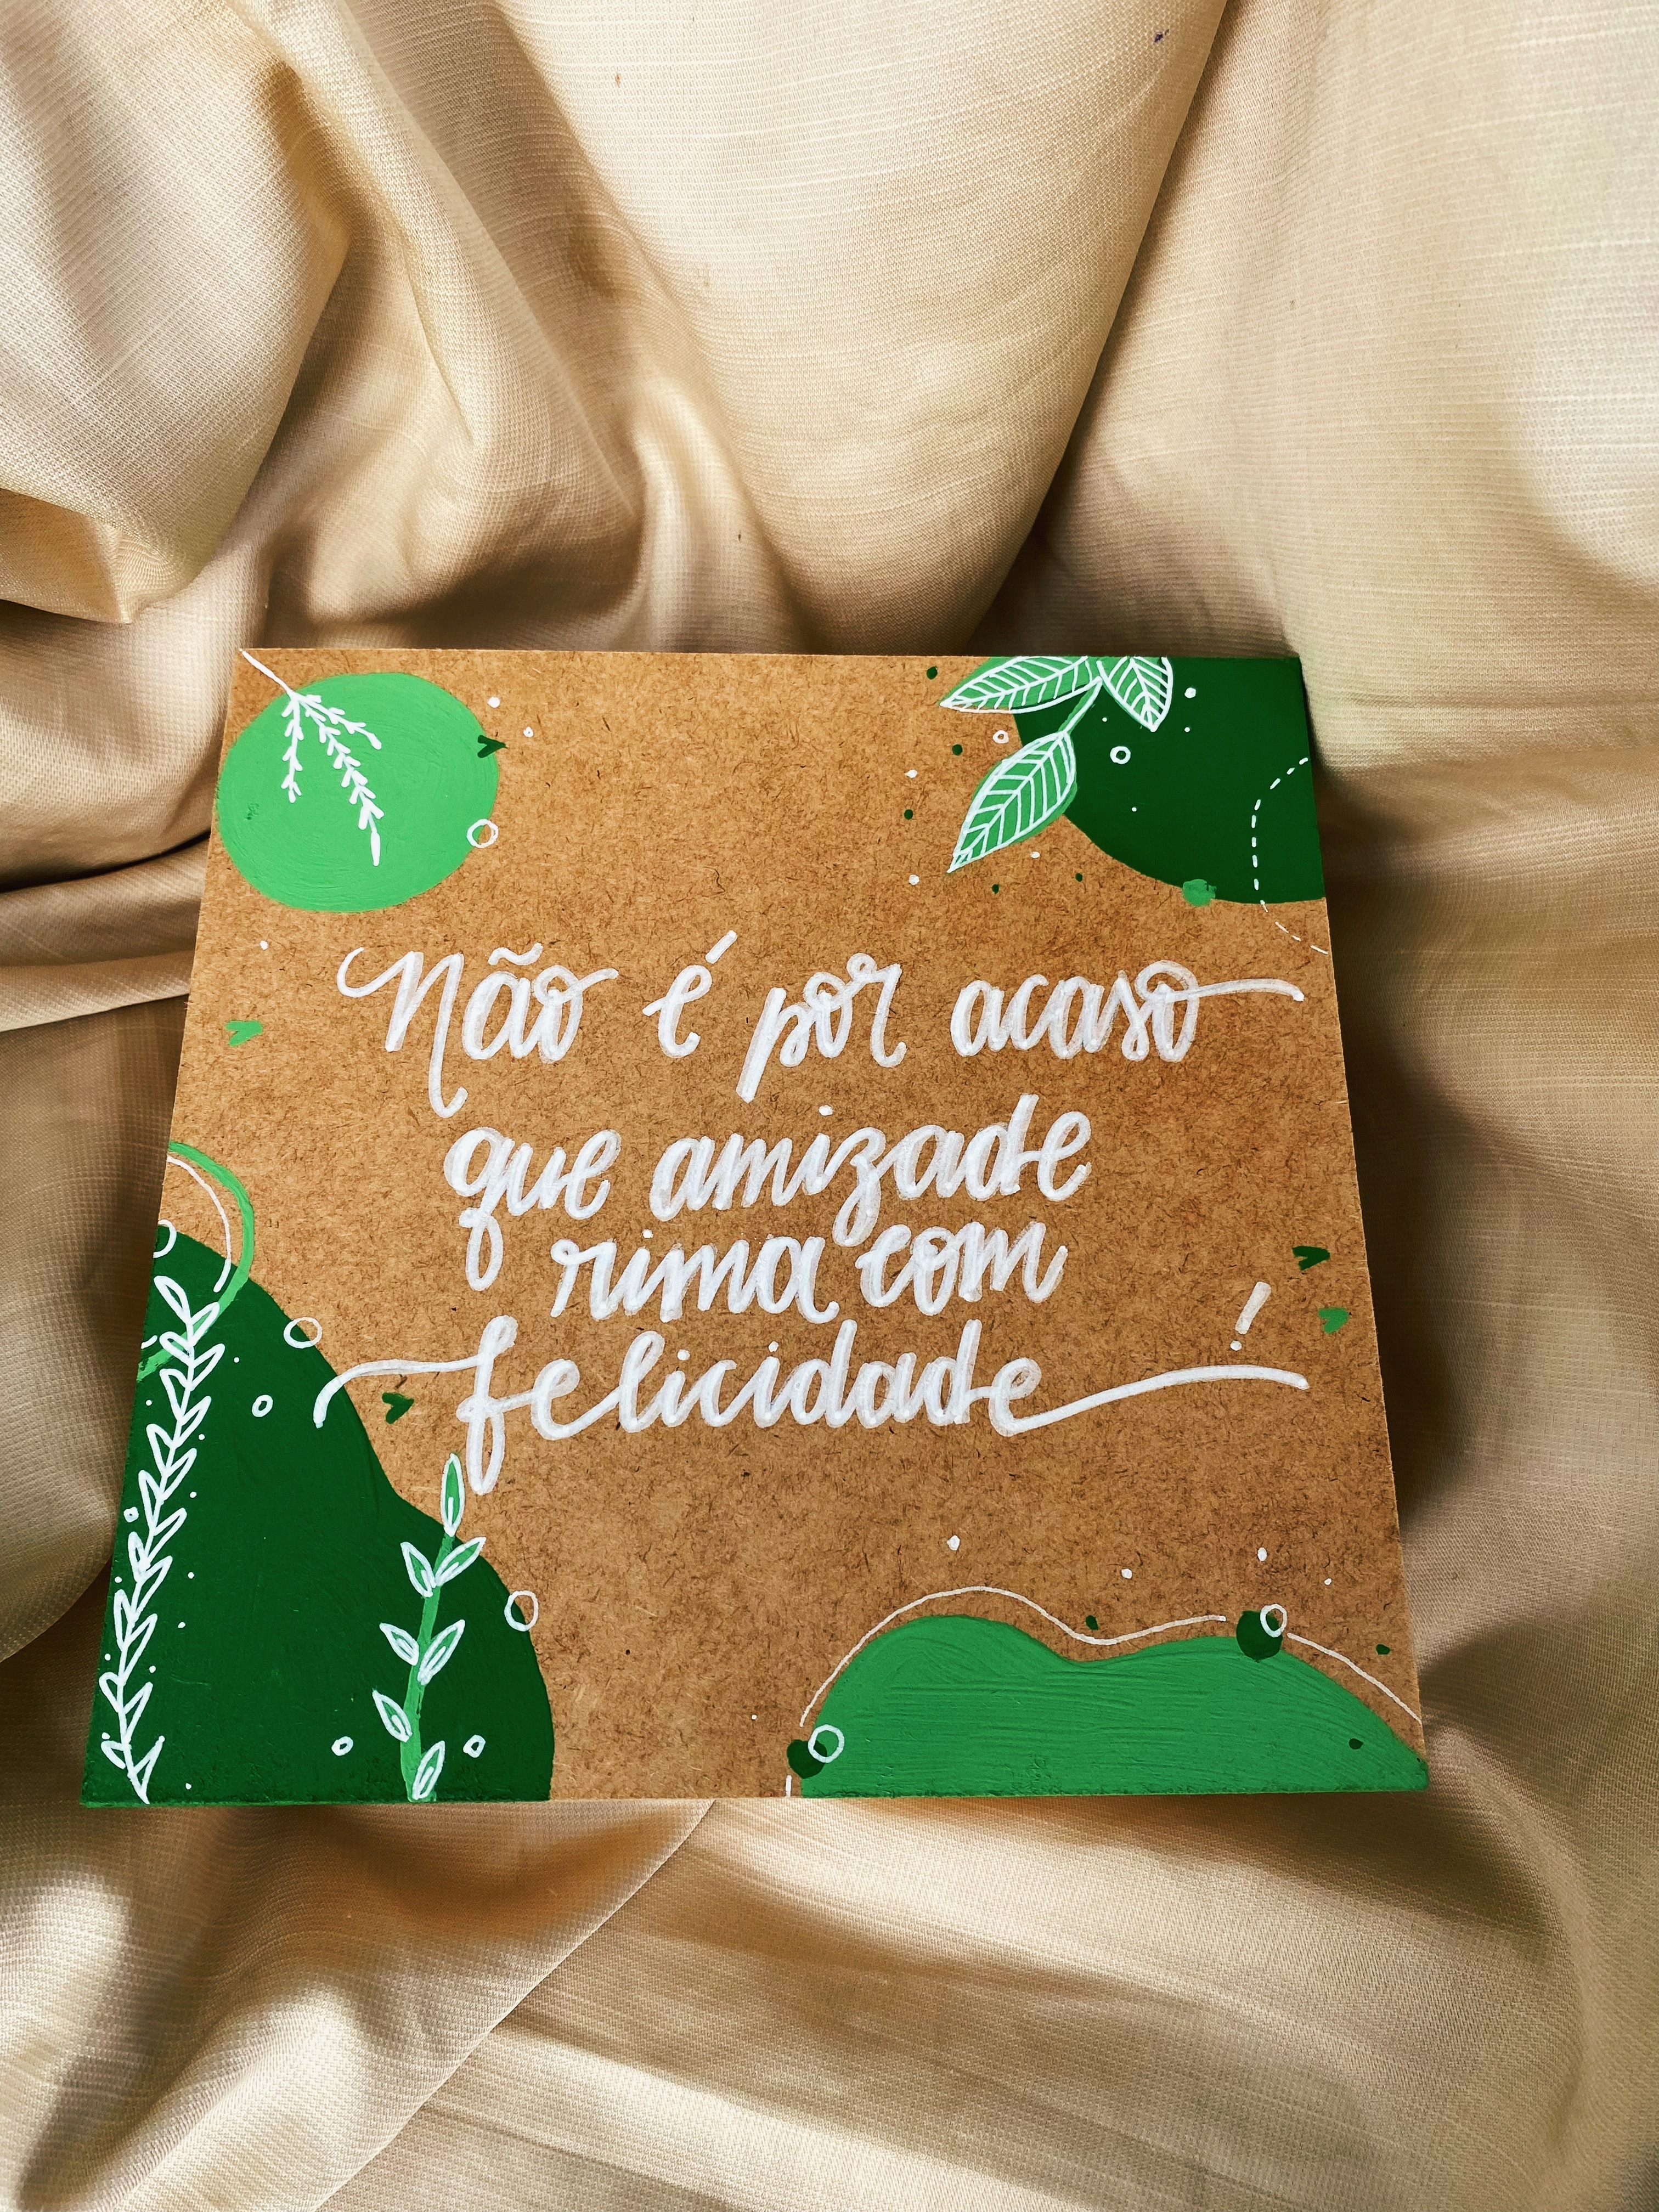 Não é por acaso
que amizade
rima com
felicidade!